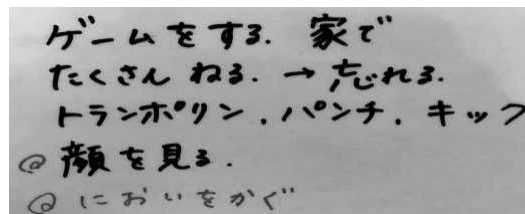 ゲームをする. 家で
たくさんねる. → 忘れる.
トランポリン. パンチ. キック
@ 顔を見る.
@ においをかぐ